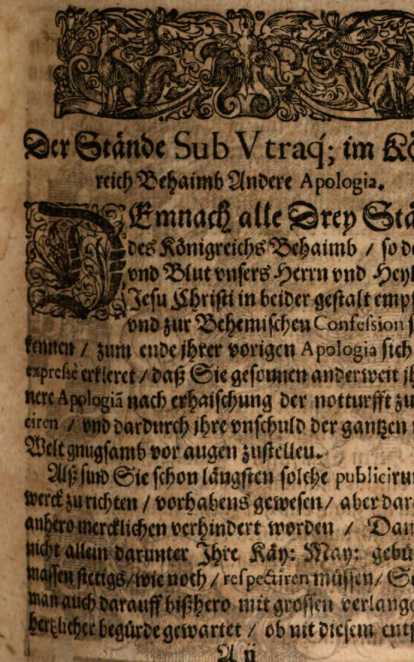 Der Stände Sub Vtraq́; im Kö
reich Behaimb Andere Apologia.
DEmnach alle Drey Stä
des Königreichs Behaimb / so d
vnd Blut vnsers Herrn vnd Heyl
Jesu Christi in beider gestalt emp
vnd zur Behemischen Confession
kennen / zum ende jhrer vorigen Apologia sich
expresse erkleret / daß Sie gesonnen anderweit jh
nere Apologiã nach erhaischung der notturfft zu
ciren / vnd dardurch jhre vnschuld der gantzen
Welt gnugsamb vor augen zustellen.
Alß sind Sie schon längsten solche publicirun
werck zu richten / vorhabens gewesen / aber dar
anhero mercklichen verhindert worden / Dan
nicht allein darunter Jhre Käy: May: gebü
massen stetigs / wie noch / respectiren müssen / S
man auch darauff bißhero mit grossen verlang
hertzlicher begürde gewartet / ob nit diesem ent
A ij